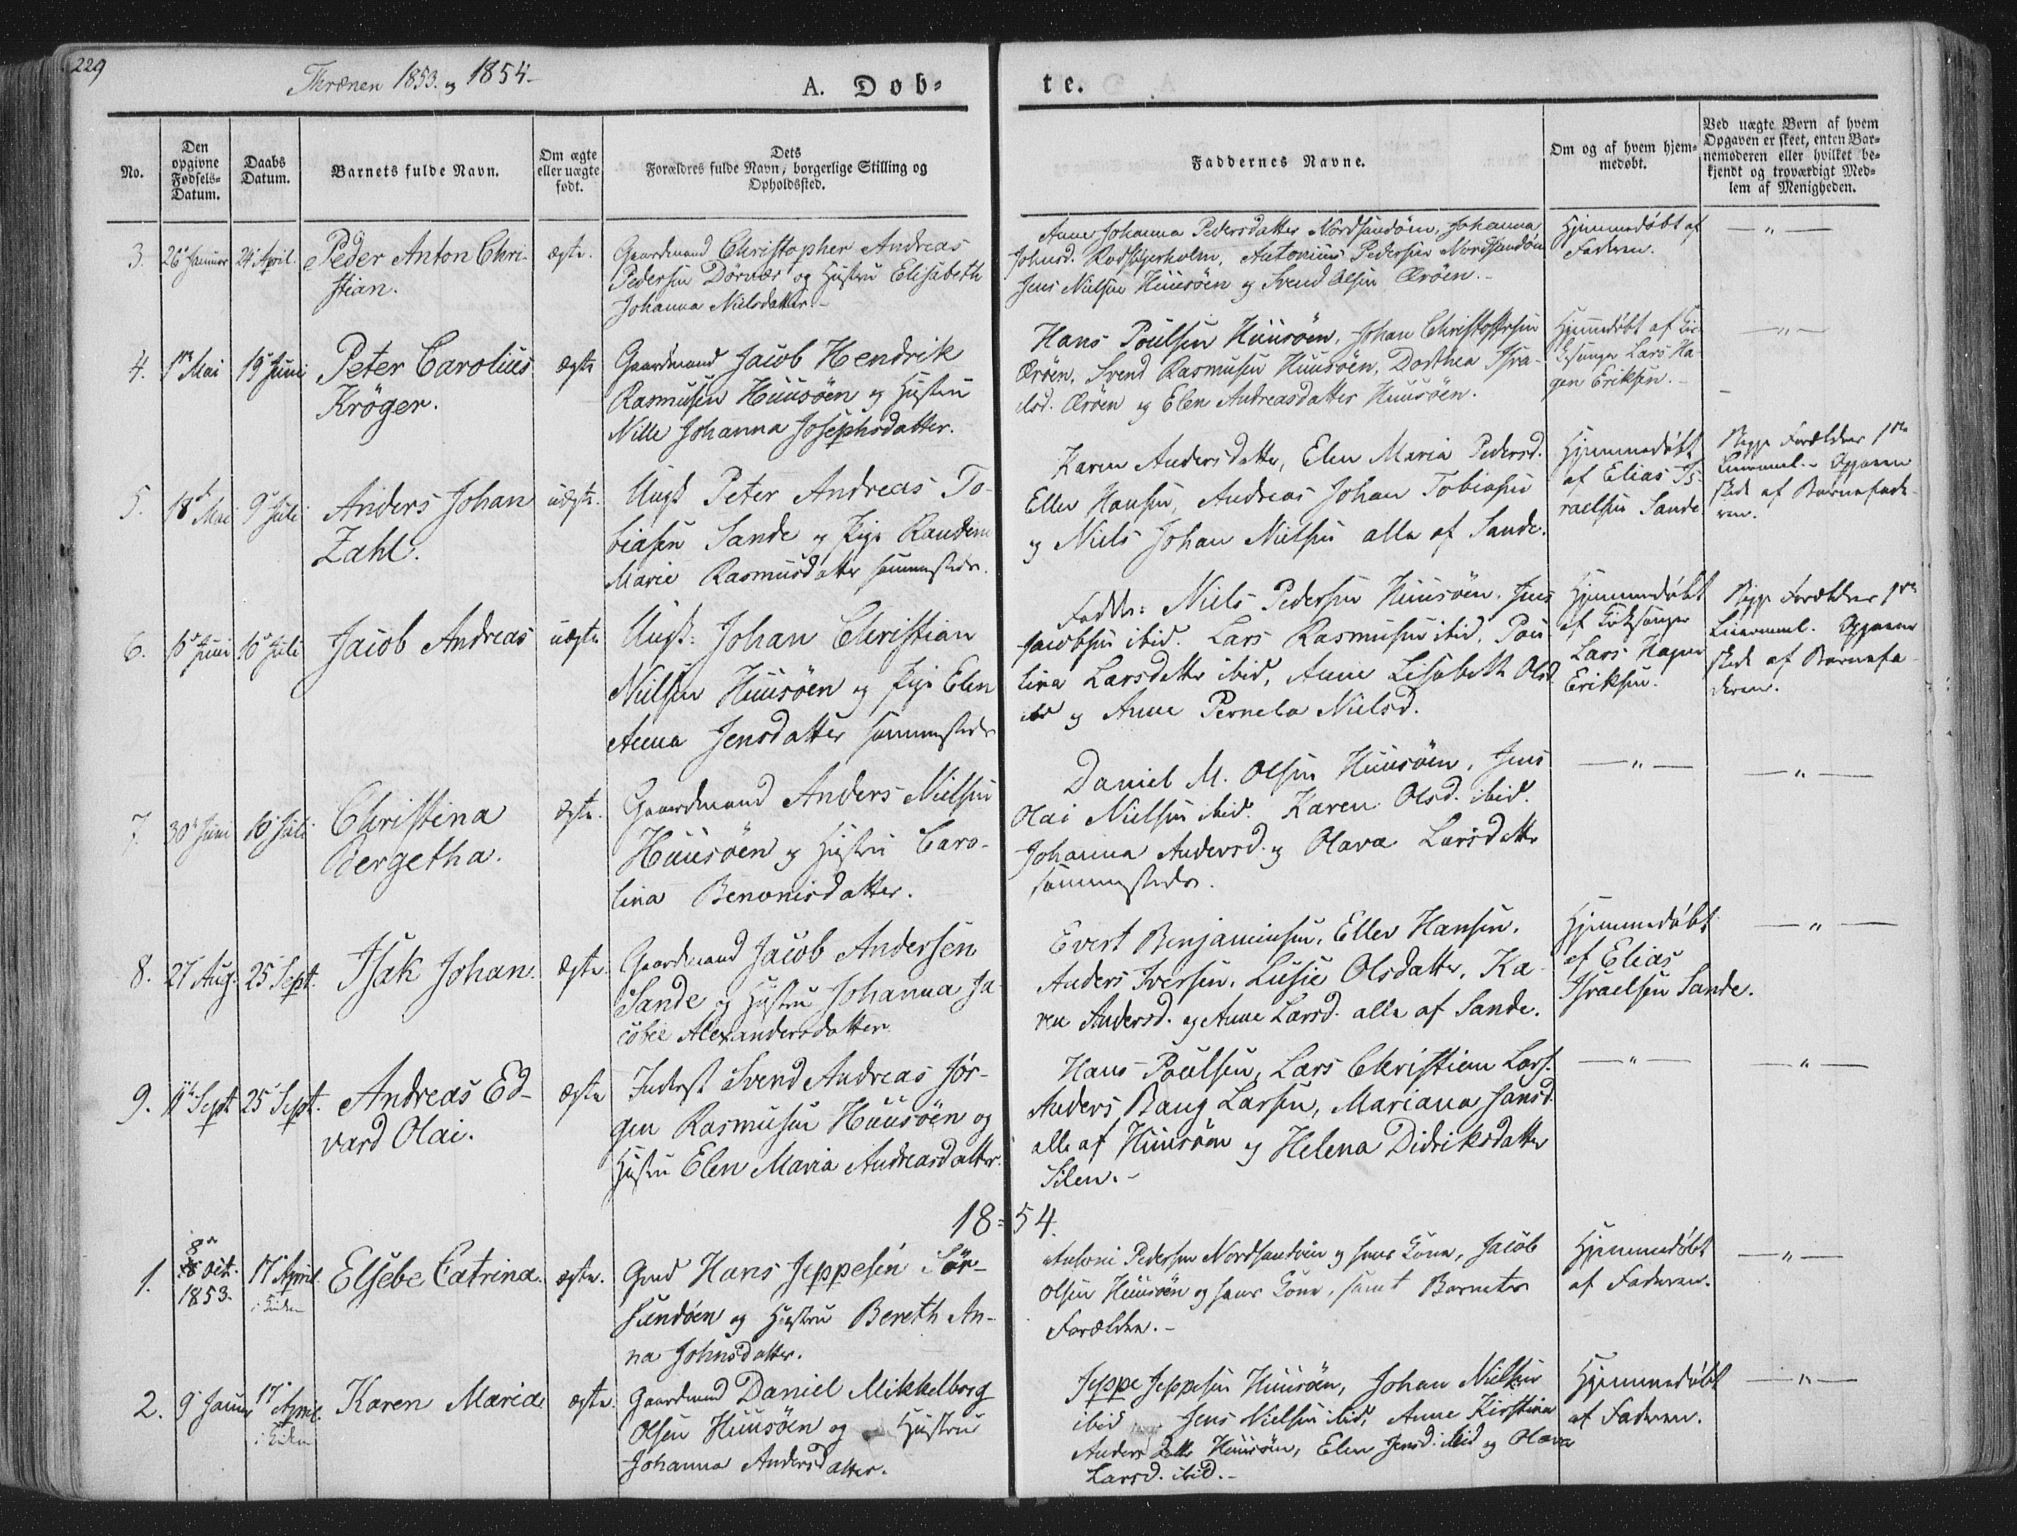 229
Thrænen 1853. og 1854.
A. Døb-
te.
No.
Den
opgivne
Fødsels-
Datum.
Daabs
Datum.
Barnets fulde Navn.
Om ægte
eller uægte
født.
Dets
Forældres fulde Navn, borgerlige Stilling og
Opholdssted.
Faddernes Navne.
Om og af hvem hjem-
medøbt.
Ved uægte Børn af hvem
Opgaven er skeet, enten Bar-
nemoderen eller hvilket be-
kjendt og troværdigt Med-
lem af Menigheden.
3.
26 Januar
24 April.
Peder Anton Chri-
stian.
ægte.
Gaardmand Christopher Andreas
Pedersen Dörvær og Hustru Elisabeth
Johanna Nielsdatter.
Anne Johanna Pedersdatter Nordsandöen, Johanna
Johnsd. Rödskjerholm, Antonius Pedersen Nordsandöen
Jens Nielsen Huusöen og Svend Olsen Ærøen.
Hjemmedøbt af
Faderen.
— " —
4.
1ste Mai
19 Juni
Peter Carolius
Kröger.
ægte
Gaardmand Jacob Hendrik
Rasmusen Huusöen og Hustru
Nille Johanna Josephsdatter.
Hans Poulsen Huusöen, Johan Christoffersen
Ærøen, Svend Rasmusen Huusöen, Dorthea Isra-
elsd. Ærøen og Elen Andreasdatter Huusöen.
Hjemmedøbt af Kir-
kesanger Lars Ha-
gen Eriksen.
— " —
5.
18 Mai
9 Juli
Anders Johan
Zahl.
uægte.
Ungk. Peter Andreas To-
biasen Sande og Pige Randine
Marie Rasmusdatter sammesteds.
Karen Andersdatter, Elen Maria Pedersd.
Eller Hansen, Andreas Johan Tobiasen
og Niels Johan Nielsen alle af Sande.
Hjemmedøbt
af Elias Is-
raelsen Sande
Begge Forældres 1ste
Leiermaal. Opgaven
skede af Barnefade-
ren.
6.
10 Juni
10 Juli
Jacob Andreas
uægte
Ungk. Johan Christian
Nielsen Huusöen og Pige Elen
Anna Jensdatter sammesteds
Fadd.: Niels Pedersen Huusöen, Jens
Jacobsen ibid. Lars Rasmusen ibid, Pou-
lina Larsdatter ibid, Anne Lisabeth Olsd.
ibid og Anne Pernela Nielsd.
Hjemmedøbt
af Kirkesanger
Lars Hagen
Eriksen.
Begge Forældres 1ste
Leiermaal. Opgaven
skede af Barnefa-
deren.
7.
30 Juni
10 Juli
Christina
Bergetha.
Ægte.
Gaardmand Anders Nielsen
Huusöen og Hustru Caro-
lina Benonisdatter.
Daniel M. Olsen Huusöen, Jens
Olai Nielsen ibid. Karen Olsd. ibid.
Johanna Andersd. og Olava Larsdatter
sammesteds.
— " —
— " —
8.
27 Aug.
25 Sept.
Isak Johan.
Ægte.
Gaardmand Jacob Andersen
Sande og Hustru Johanna Ja-
cobee Alexandersdatter
Evert Benjaminsen, Eller Hansen,
Anders Iversen, Lusie Olsdatter, Ka-
ren Andersd. og Anne Larsd. alle af Sande.
Hjemmedøbt
af Elias
Israelsen Sande.
— " —
9.
11 Sept
25 Sept.
Andreas Ed-
vard Olai.
Ægte
Inderst Svend Andreas Jör-
gen Rasmusen Huusöen og
Hustru Elen Maria Andreasdatter.
Hans Poulsen, Lars Christian Lars.
Anders Bang Larsen, Mariana Jansd.
alle af Huusöen og Helena Didriksdatter
Silen.
— " —
— " —
18-54.
1.
8
Oct.
1853.
17 April
i Kirken
Elsebe Catrina.
ægte.
Gmd Hans Jeppesen Sör-
sundöen og Hustru Bereth An-
na Johnsdatter.
Antoni Pedersen Nordsandöen og hans Kone, Jacob
Olsen Huusöen og hans Kone, samt Barnets
Forældre.
Hjemmedøbt
af Faderen.
— " —
2.
9 Januar
17 April.
i Kirken
Karen Maria
ægte.
Gaardmand Daniel Mikkelborg
Olsen Huusöen og Hustru
Johanna Andersdatter.
Jeppe Jeppesen Huusöen, Johan Nielsen
ibid Jens Nielsen ibid, Anne Kirstina
Andersdatter Huusöen, Elen Jensd. ibid og Olava
Larsd. ibid.
Hjemmedøbt
af Faderen.
— " —